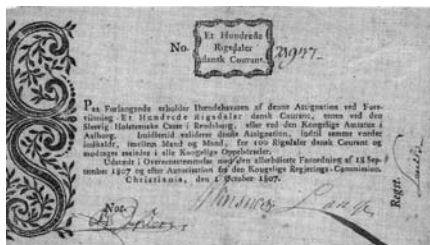 Et Hundrede
No. Rigsdaler
dansk Courant.
Paa Forlangende erholder Ihændehaveren af denne Assignation ved Fore-
viisning Et Hundrede Rigsdaler dansk Courant, enten ved den
Slesvig Holsteenske Casse i Rendsborg, eller ved den Kongelige Amtstue i
Aalborg. Imidlertid validerer denne Assignation, indtil samme vorder
indkaldt, imellem Mand og Mand, for 100 Rigsdaler dansk Courant og
modtages saaledes i alle Kongelige Oppebørseler.
Udstedt i Overeensstemmelse med den allerhöieste Forordning af 18 Sep-
tember 1807 og efter Autorisation fra den Kongelige Regjerings-Commission.
Christiania, den 1 October 1807.
Not.
Regst.